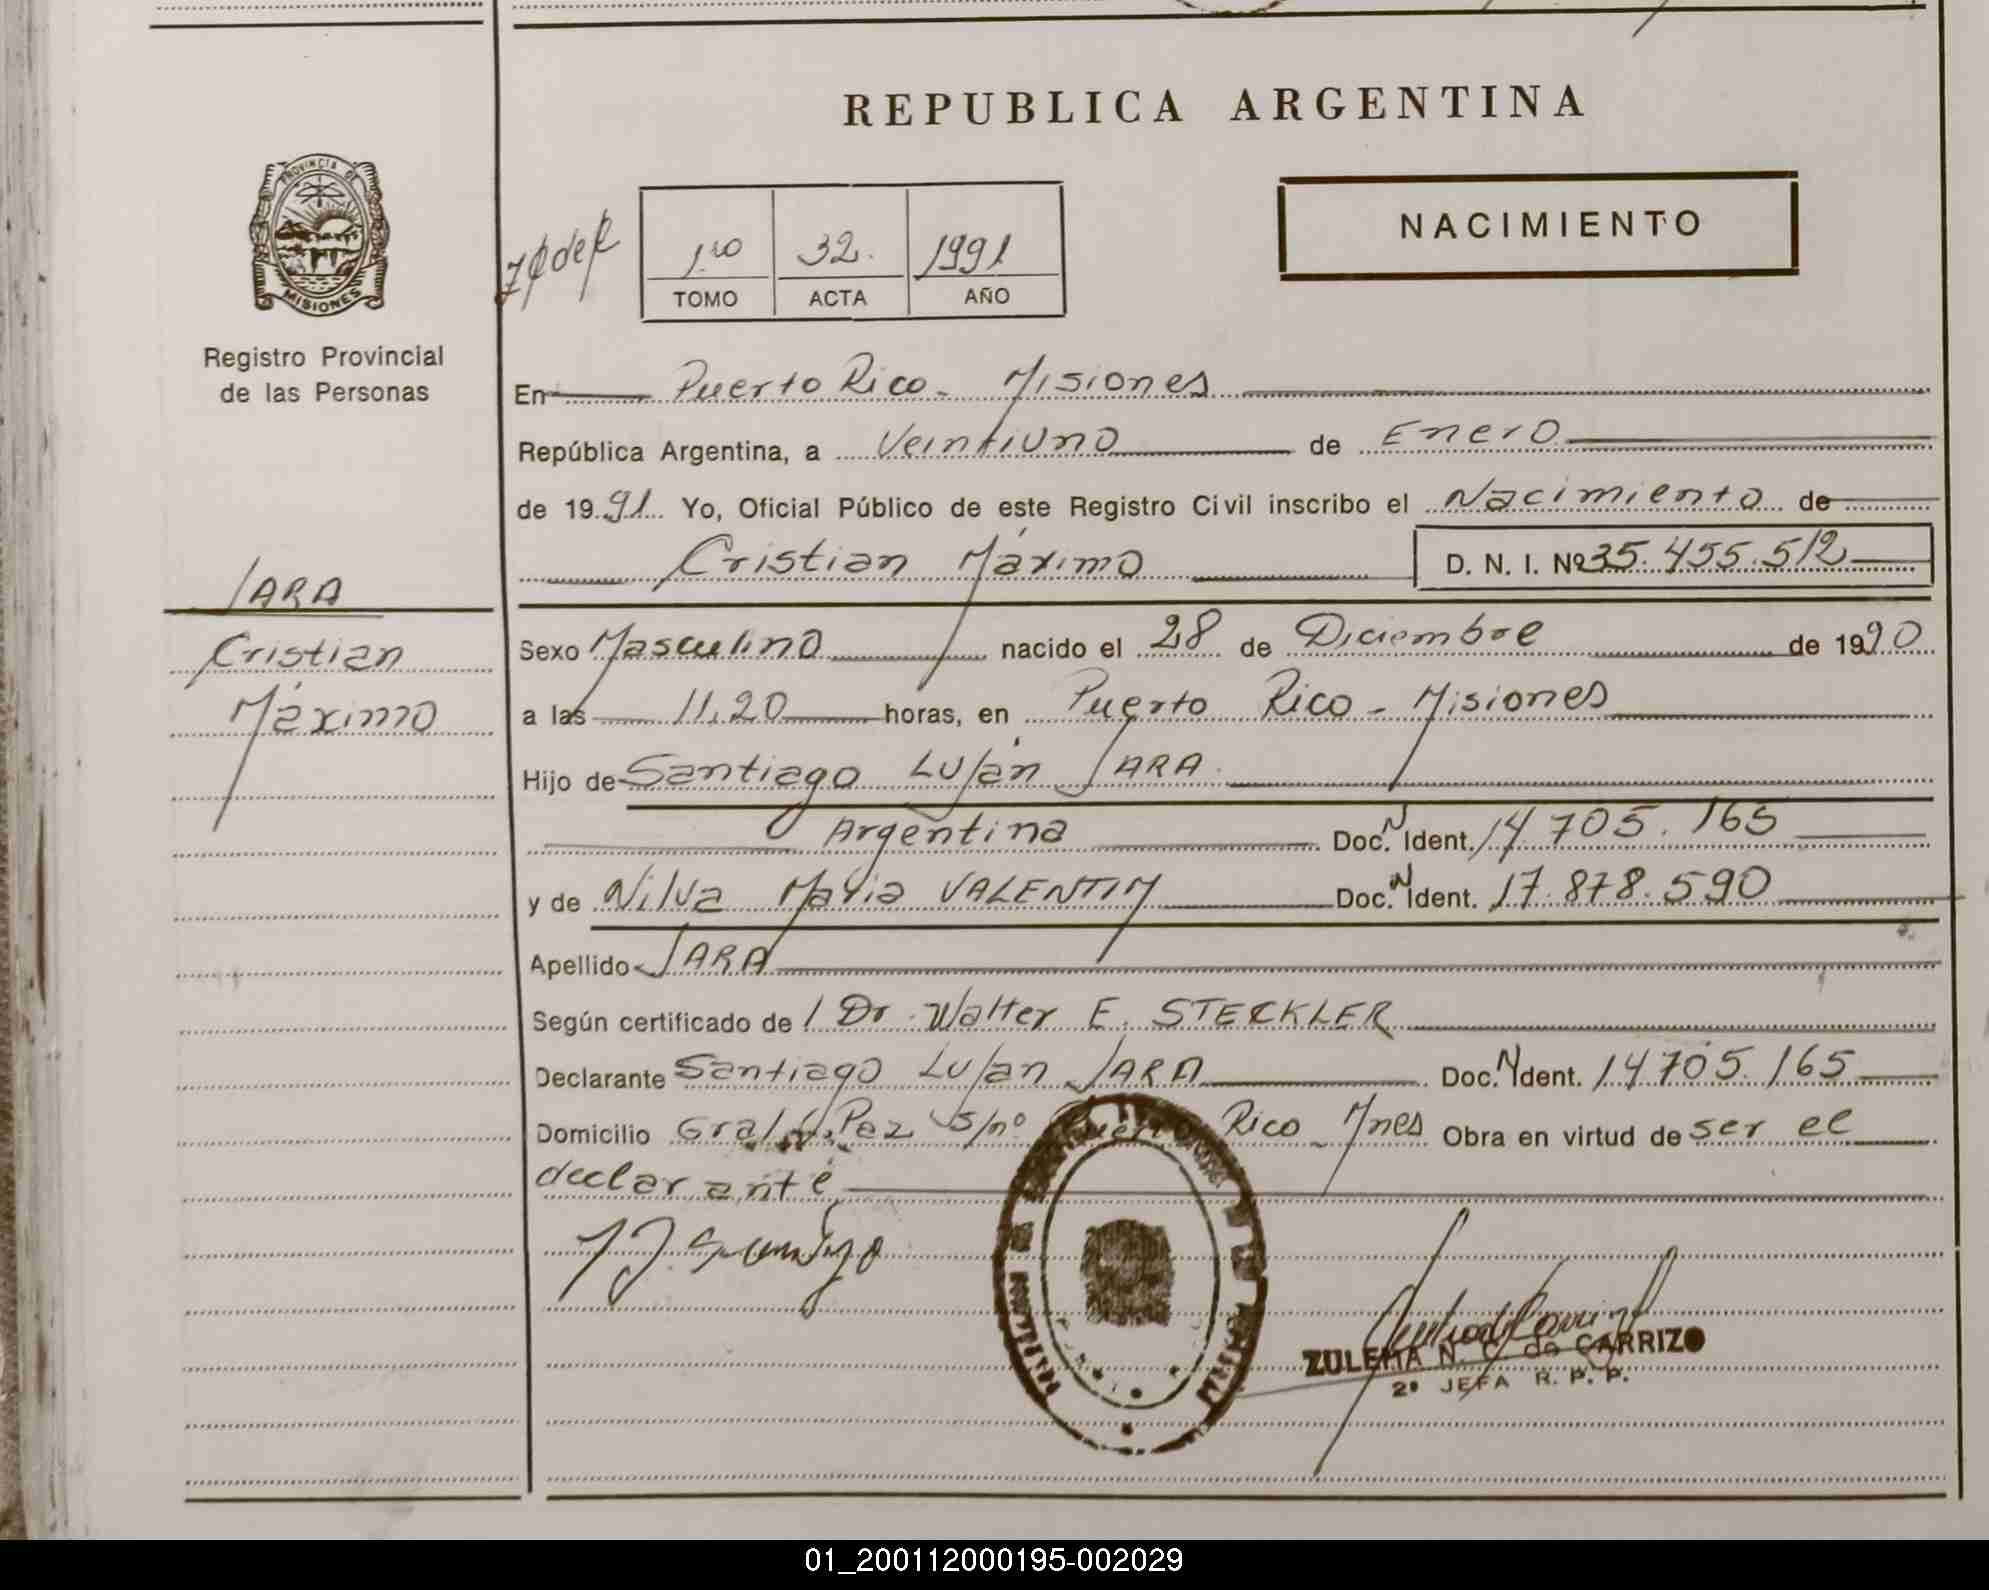 REPUBLICA ARGENTINA
PROVINCIA DE
MISIONES
Registro Provincial
de las Personas
1ro 32. 1991
TOMO ACTA AÑO
NACIMIENTO
En Puerto Rico - Misiones
República Argentina, a Veintiuno de Enero
de 1991 Yo, Oficial Público de este Registro Civil inscribo el Nacimiento de
Cristian Máximo D. N. I. Nº 35.455.512
JARA
Cristian
Máximo
Sexo Masculino nacido el 28 de Diciembre de 1990
a las 11,20 horas, en Puerto Rico - Misiones
Hijo de Santiago Luján JARA
Argentina Doc. N Ident. 14.705.165
y de Nilva Maria VALENTIM Doc. N Ident. 17.878.590
Apellido JARA
Según certificado de / Dr. Walter E. STECKLER
Declarante Santiago Luján JARA Doc. N Ident. 14.705.165
Domicilio Gral. Paz s/nº Puerto Rico - Mnes Obra en virtud de ser el
declarante
ZULEMA N. C. de CARRIZO
2ª JEFA R. P. P.
01_200112000195-002029